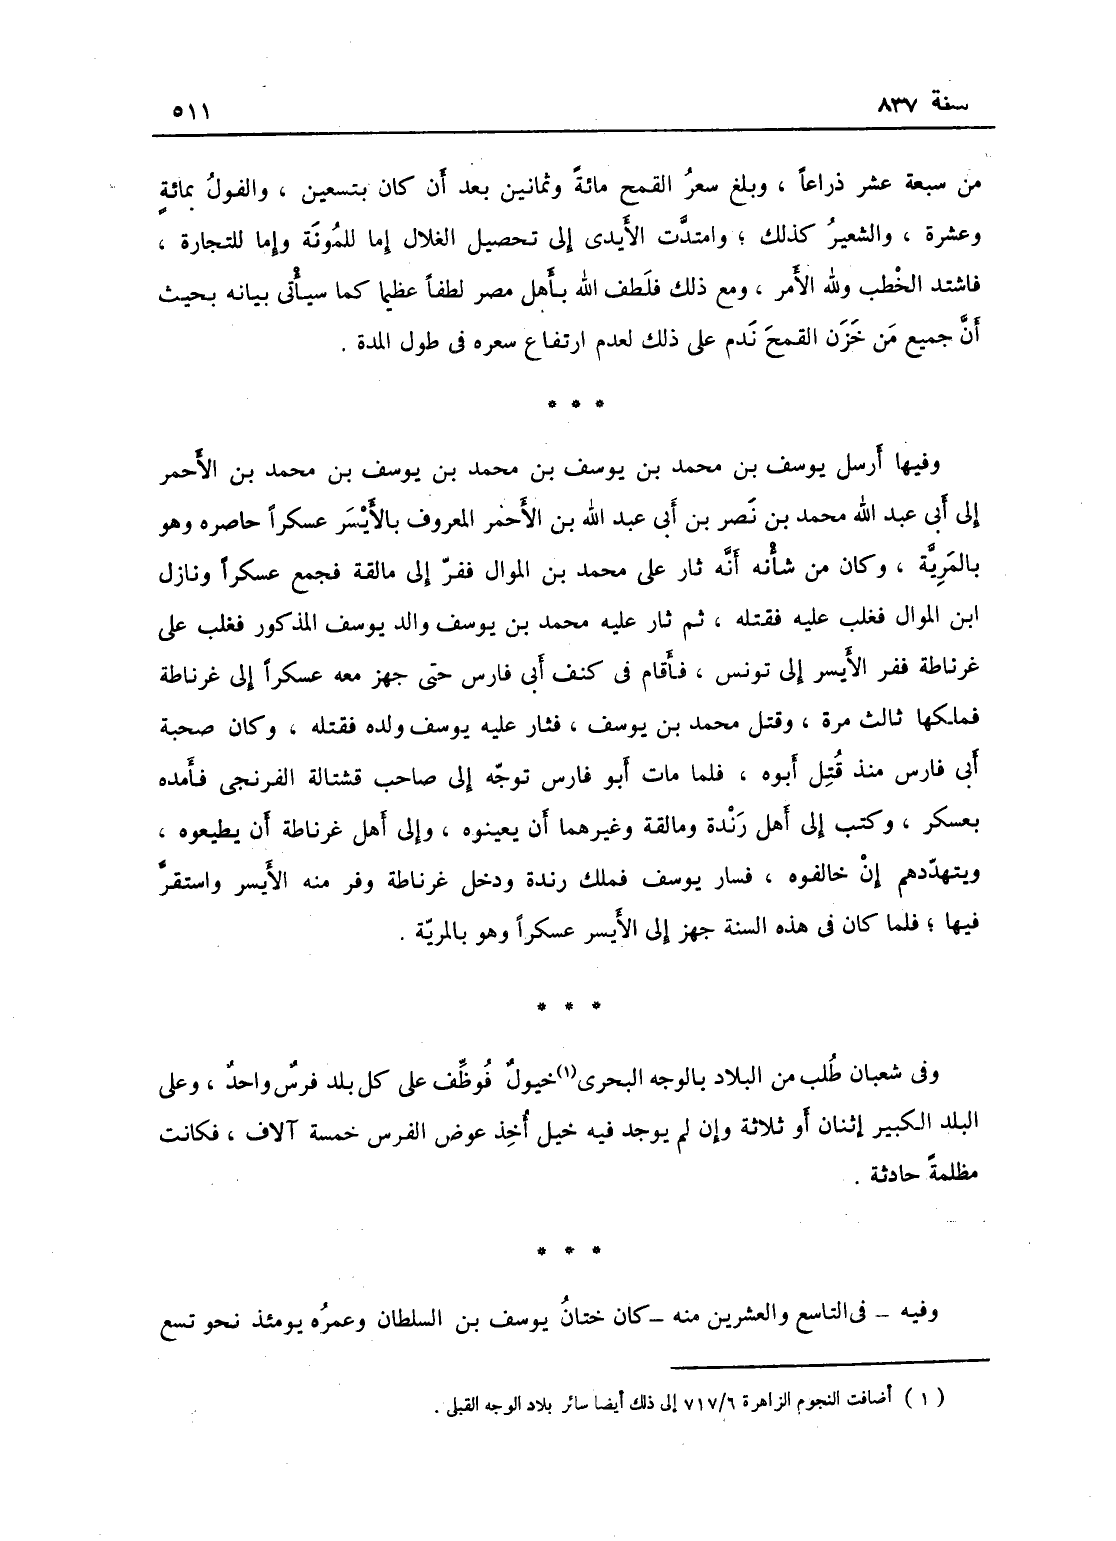 سنة ٨٣٧
٥١١
من سبعة عشر ذراعاً ، وبلغ سعرُ القمح مائةً وثمانين بعد أن كان بتسعين ، والفولُ بمائةٍ
وعشرة ، والشعيرُ كذلك ؛ وامتدَّت الأَيدى إلى تحصيل الغلال إما للمُونَة وإما للتجارة ،
فاشتد الخطْب ولله الأَمر ، ومع ذلك فلَطف الله بأَهل مصر لطفاً عظيما كما سيأْتى بيانه بحيث
أَنَّ جميع مَن خَزَن القمحَ نَدم على ذلك لعدم ارتفاع سعره فى طول المدة .
* * *
وفيها أَرسل يوسف بن محمد بن يوسف بن محمد بن يوسف بن محمد بن الأَحمر
إلى أَبى عبد الله محمد بن نَصر بن أَبى عبد الله بن الأَحمر المعروف بالأَيْسَر عسكراً حاصره وهو
بالمَرِيَّة ، وكان من شأْنه أَنَّه ثار على محمد بن الموال ففرّ إلى مالقة فجمع عسكراً ونازل
ابن الموال فغلب عليه فقتله ، ثم ثار عليه محمد بن يوسف والد يوسف المذكور فغلب على
غرناطة ففر الأَيسر إلى تونس ، فأَقام فى كنف أَبى فارس حتى جهز معه عسكراً إلى غرناطة
فملكها ثالث مرة ، وقتل محمد بن يوسف ، فثار عليه يوسف ولده فقتله ، وكان صحبة
أَبى فارس منذ قُتِل أَبوه ، فلما مات أَبو فارس توجّه إلى صاحب قشتالة الفرنجى فأَمده
بعسكر ، وكتب إلى أَهل رَنْدة ومالقة وغيرهما أَن يعينوه ، وإلى أَهل غرناطة أَن يطيعوه ،
ويتهدّدهم إنْ خالفوه ، فسار يوسف فملك رندة ودخل غرناطة وفر منه الأَيسر واستقرَّ
فيها ؛ فلما كان فى هذه السنة جهز إلى الأَيسر عسكراً وهو بالمريّة .
* * *
وفى شعبان طُلب من البلاد بالوجه البحرى(١) خيولٌ فُوظِّف على كل بلد فرسٌ واحدٌ ، وعلى
البلد الكبير إثنان أَو ثلاثة وإن لم يوجد فيه خيل أُخِذ عوض الفرس خمسة آلاف ، فكانت
مظلمةً حادثة .
* * *
وفيه – فى التاسع والعشرين منه – كان ختانُ يوسف بن السلطان وعمرُه يومئذ نحو تسع
( ١ ) أضافت النجوم الزاهرة ٧١٧/٦ إلى ذلك أيضا سائر بلاد الوجه القبلى .